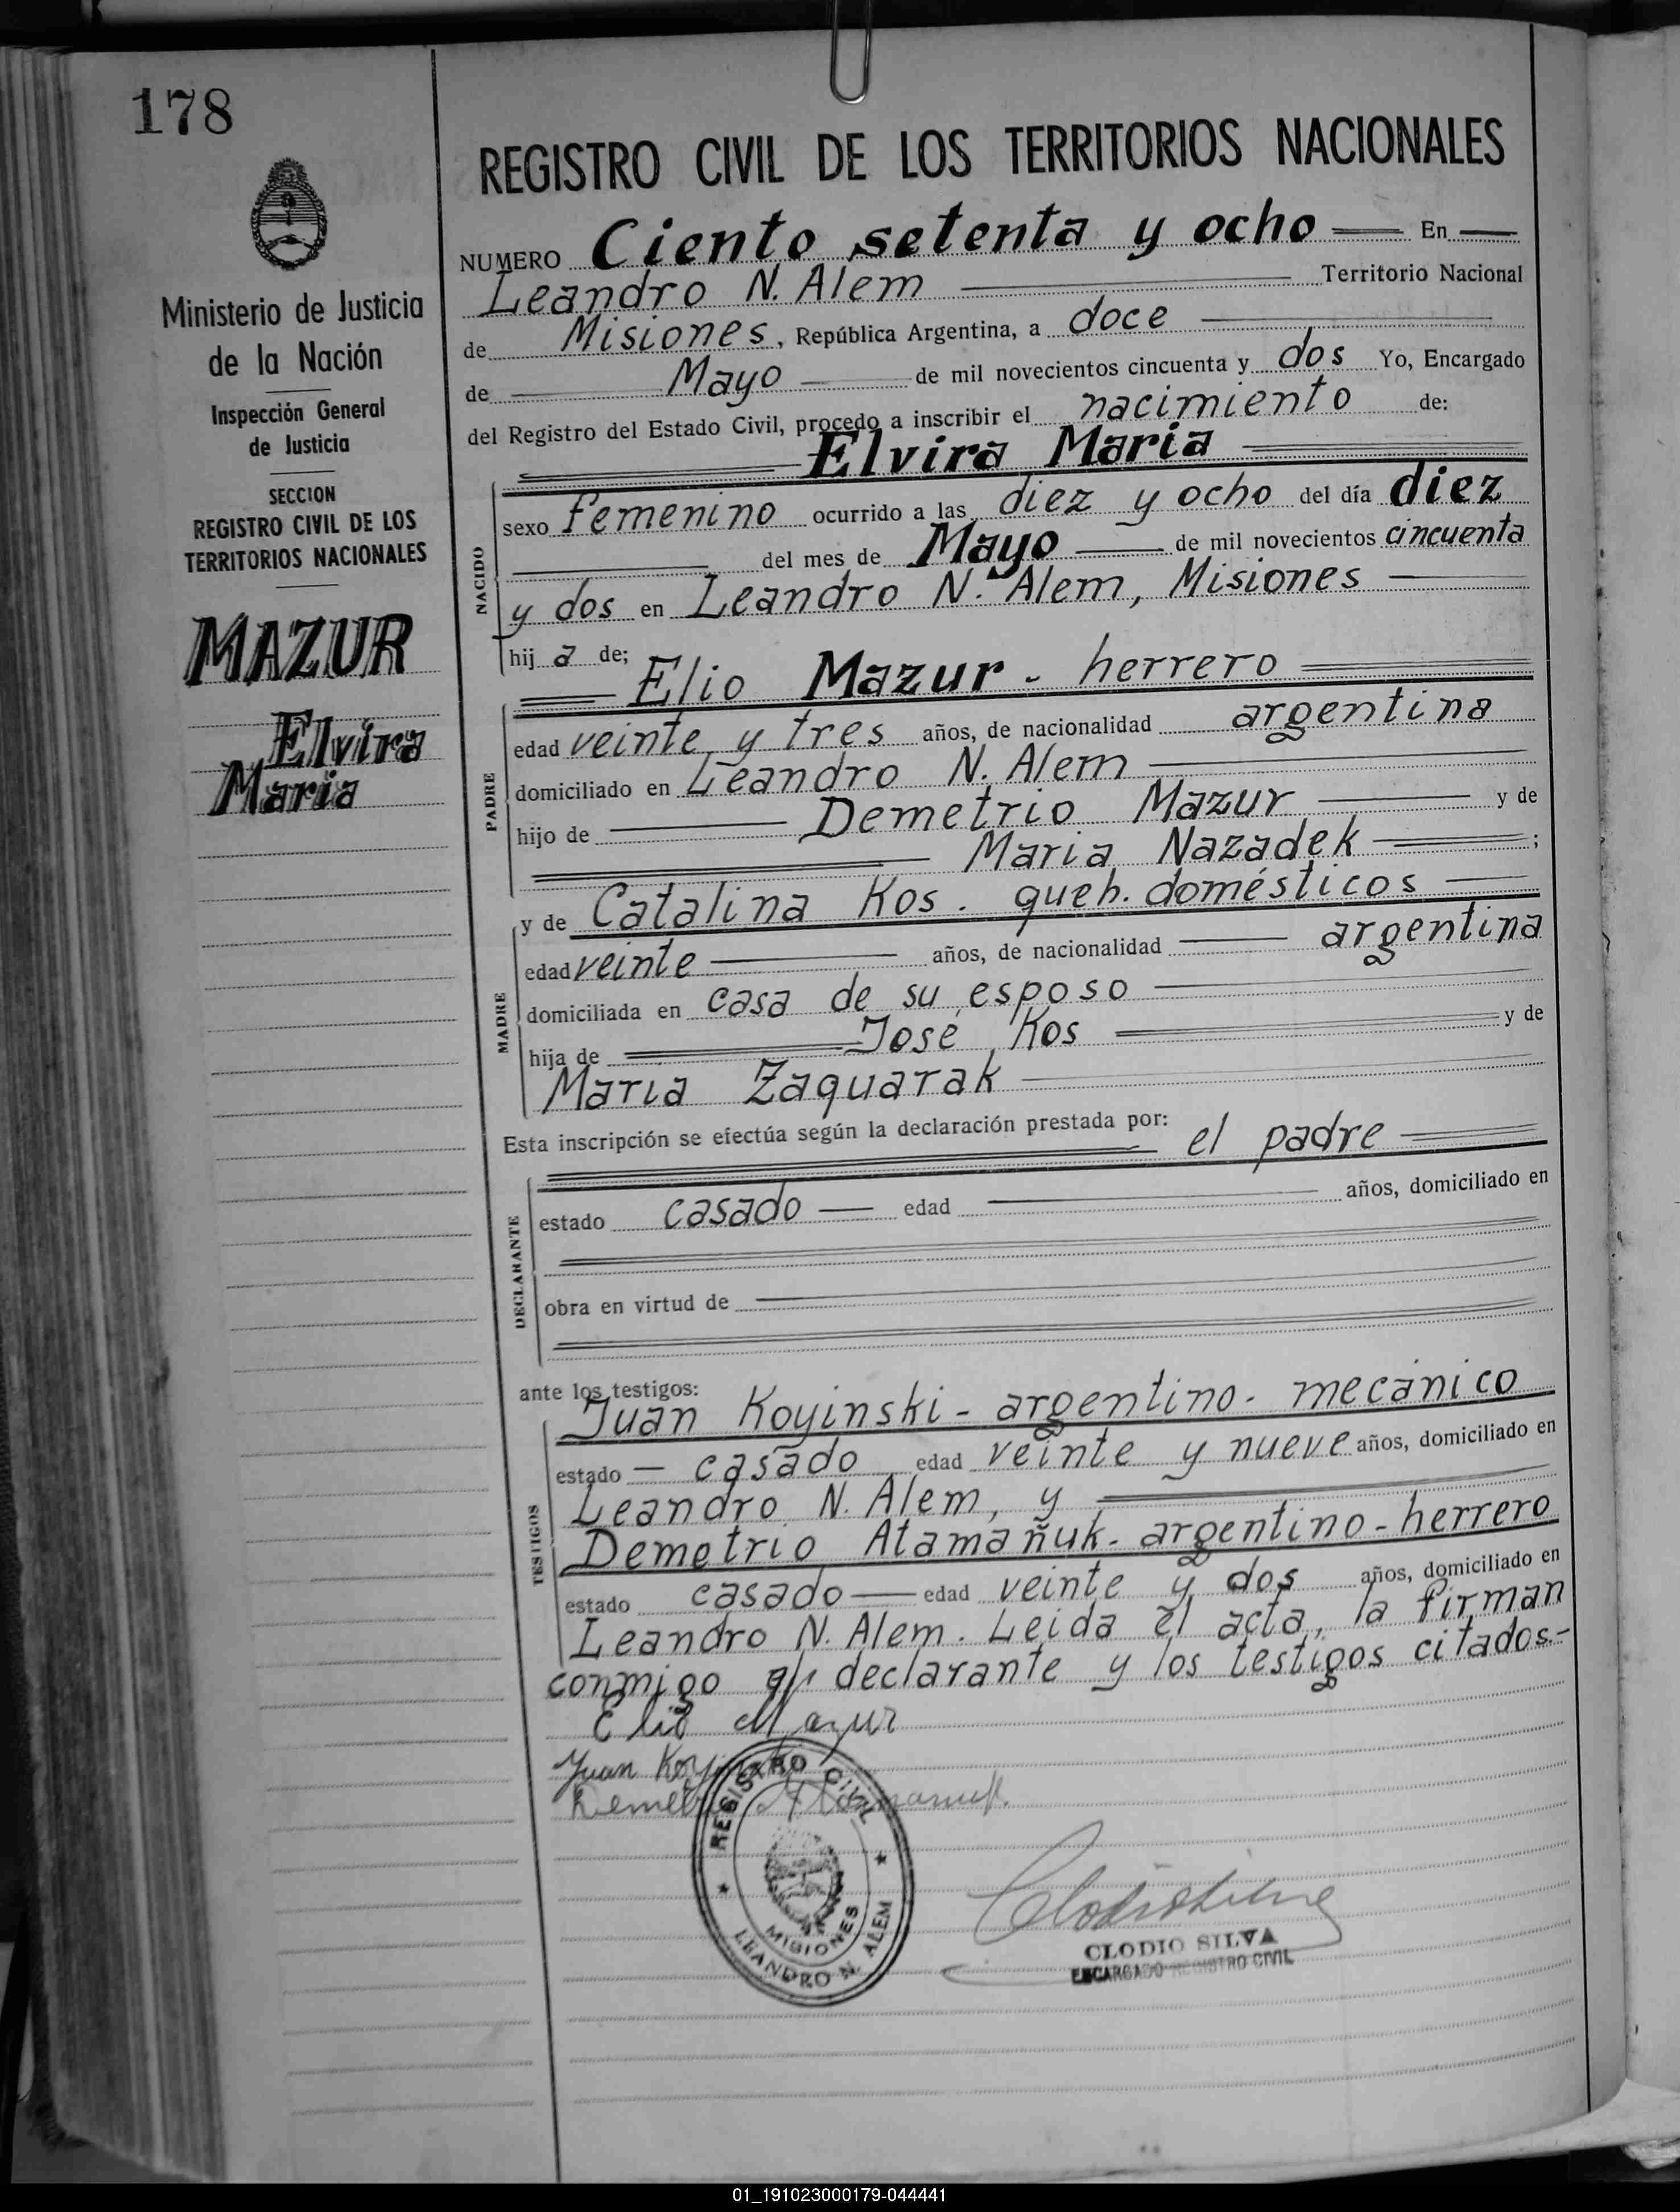 178
Ministerio de Justicia
de la Nación
Inspección General
de Justicia
SECCION
REGISTRO CIVIL DE LOS
TERRITORIOS NACIONALES
MAZUR
Elvira
Maria
REGISTRO CIVIL DE LOS TERRITORIOS NACIONALES
NUMERO Ciento setenta y ocho En
Leandro N. Alem Territorio Nacional
de Misiones, República Argentina, a doce
de Mayo de mil novecientos cincuenta y dos Yo, Encargado
del Registro del Estado Civil, procedo a inscribir el nacimiento de:
Elvira Maria
NACIDO
sexo femenino ocurrido a las diez y ocho del día diez
del mes de Mayo de mil novecientos cincuenta
y dos en Leandro N. Alem, Misiones
hij a de;
Elio Mazur - herrero
PADRE
edad veinte y tres años, de nacionalidad argentina
domiciliado en Leandro N. Alem
hijo de Demetrio Mazur y de
Maria Nazadek ;
y de Catalina Kos. queh. domésticos
MADRE
edad veinte años, de nacionalidad argentina
domiciliada en casa de su esposo
hija de José Kos y de
Maria Zaquarak
Esta inscripción se efectúa según la declaración prestada por:
el padre
DECLARANTE
estado casado edad años, domiciliado en
obra en virtud de
ante los testigos:
Juan Koyinski - argentino - mecánico
TESTIGOS
estado casado edad veinte y nueve años, domiciliado en
Leandro N. Alem, y
Demetrio Atamañuk - argentino - herrero
estado casado edad veinte y dos años, domiciliado en
Leandro N. Alem. Leida el acta, la firman
conmigo el declarante y los testigos citados.-
Elio Mazur
Juan Koyinski
Demetrio Atamanuk.
REGISTRO CIVIL
MISIONES
LEANDRO N. ALEM
CLODIO SILVA
ENCARGADO REGISTRO CIVIL
01_191023000179-044441